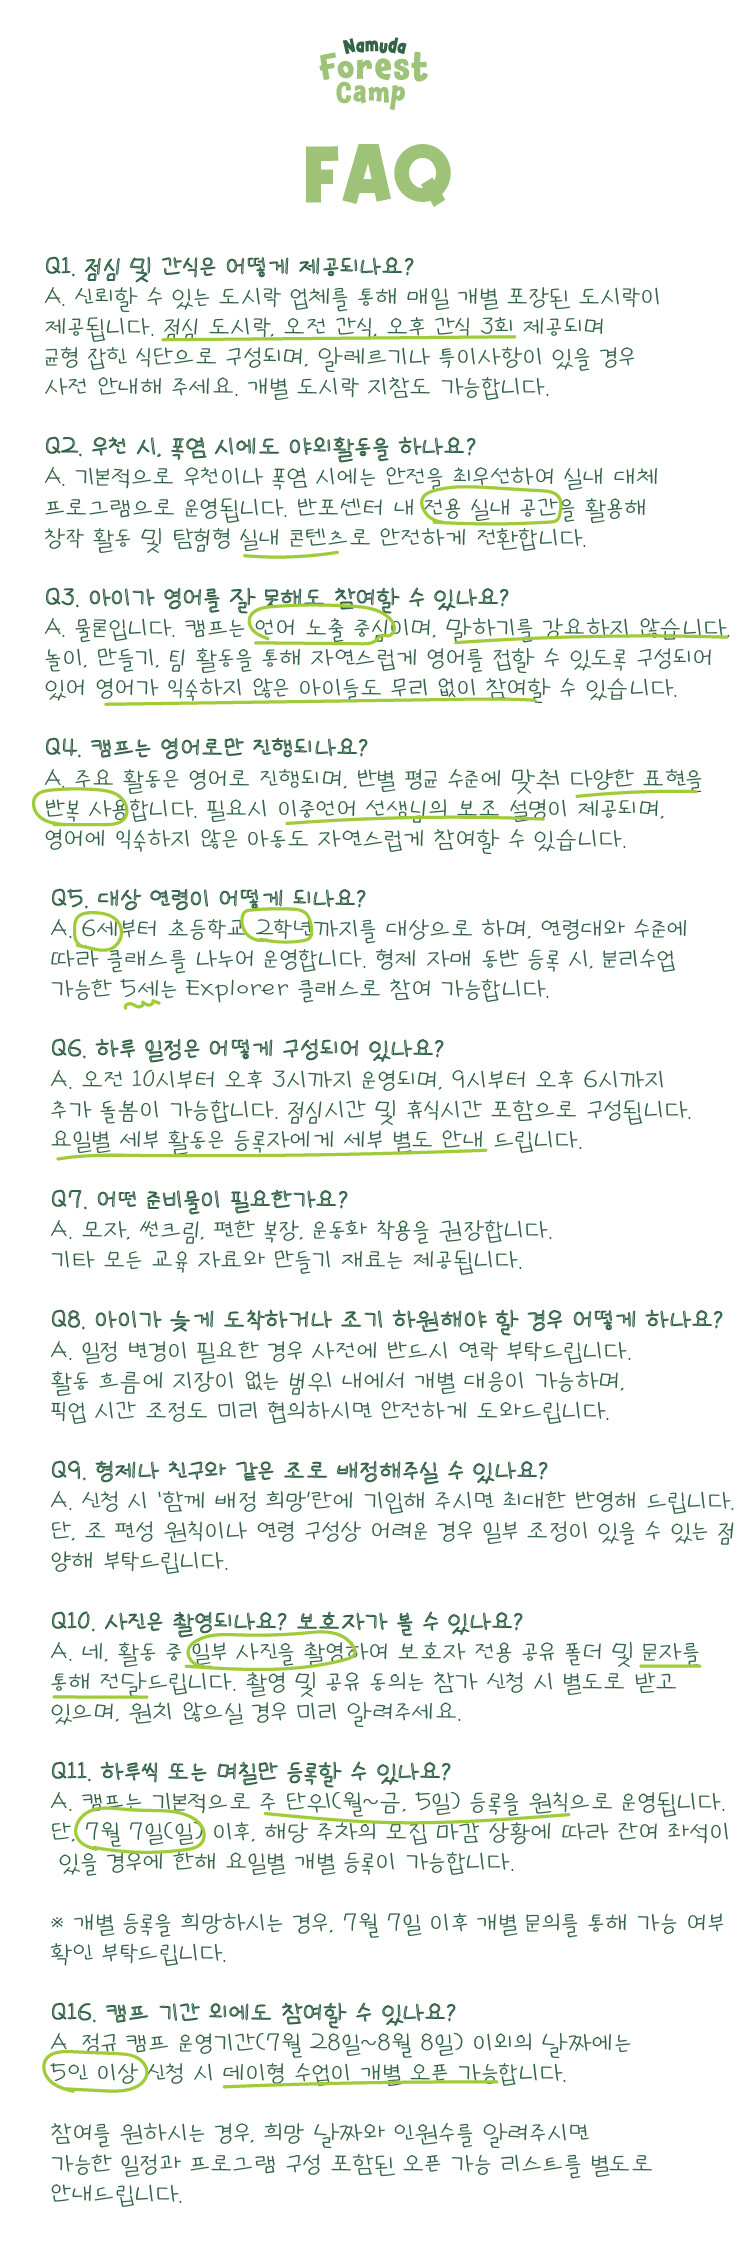 Namuda
Forest
Camp
FAQ
Q1. 점심 및 간식은 어떻게 제공되나요?
A. 신뢰할 수 있는 도시락 업체를 통해 매일 개별 포장된 도시락이
제공됩니다. 점심 도시락, 오전 간식, 오후 간식 3회 제공되며
균형 잡힌 식단으로 구성되며, 알레르기나 특이사항이 있을 경우
사전 안내해 주세요. 개별 도시락 지참도 가능합니다.
Q2. 우천 시, 폭염 시에도 야외활동을 하나요?
A. 기본적으로 우천이나 폭염 시에는 안전을 최우선하여 실내 대체
프로그램으로 운영됩니다. 반포센터 내 전용 실내 공간을 활용해
창작 활동 및 탐험형 실내 콘텐츠로 안전하게 전환합니다.
Q3. 아이가 영어를 잘 못해도 참여할 수 있나요?
A. 물론입니다. 캠프는 언어 노출 중심이며, 말하기를 강요하지 않습니다.
놀이, 만들기, 팀 활동을 통해 자연스럽게 영어를 접할 수 있도록 구성되어
있어 영어가 익숙하지 않은 아이들도 무리 없이 참여할 수 있습니다.
Q4. 캠프는 영어로만 진행되나요?
A. 주요 활동은 영어로 진행되며, 반별 평균 수준에 맞춰 다양한 표현을
반복 사용합니다. 필요시 이중언어 선생님의 보조 설명이 제공되며,
영어에 익숙하지 않은 아동도 자연스럽게 참여할 수 있습니다.
Q5. 대상 연령이 어떻게 되나요?
A. 6세부터 초등학교 2학년까지를 대상으로 하며, 연령대와 수준에
따라 클래스를 나누어 운영합니다. 형제 자매 동반 등록 시, 분리수업
가능한 5세는 Explorer 클래스로 참여 가능합니다.
Q6. 하루 일정은 어떻게 구성되어 있나요?
A. 오전 10시부터 오후 3시까지 운영되며, 9시부터 오후 6시까지
추가 돌봄이 가능합니다. 점심시간 및 휴식시간 포함으로 구성됩니다.
요일별 세부 활동은 등록자에게 세부 별도 안내 드립니다.
Q7. 어떤 준비물이 필요한가요?
A. 모자, 썬크림, 편한 복장, 운동화 착용을 권장합니다.
기타 모든 교육 자료와 만들기 재료는 제공됩니다.
Q8. 아이가 늦게 도착하거나 조기 하원해야 할 경우 어떻게 하나요?
A. 일정 변경이 필요한 경우 사전에 반드시 연락 부탁드립니다.
활동 흐름에 지장이 없는 범위 내에서 개별 대응이 가능하며,
픽업 시간 조정도 미리 협의하시면 안전하게 도와드립니다.
Q9. 형제나 친구와 같은 조로 배정해주실 수 있나요?
A. 신청 시 '함께 배정 희망'란에 기입해 주시면 최대한 반영해 드립니다.
단, 조 편성 원칙이나 연령 구성상 어려운 경우 일부 조정이 있을 수 있는 점
양해 부탁드립니다.
Q10. 사진은 촬영되나요? 보호자가 볼 수 있나요?
A. 네, 활동 중 일부 사진을 촬영하여 보호자 전용 공유 폴더 및 문자를
통해 전달드립니다. 촬영 및 공유 동의는 참가 신청 시 별도로 받고
있으며, 원치 않으실 경우 미리 알려주세요.
Q11. 하루씩 또는 며칠만 등록할 수 있나요?
A. 캠프는 기본적으로 주 단위(월~금, 5일) 등록을 원칙으로 운영됩니다.
단, 7월 7일(일) 이후, 해당 주차의 모집 마감 상황에 따라 잔여 좌석이
있을 경우에 한해 요일별 개별 등록이 가능합니다.
※ 개별 등록을 희망하시는 경우, 7월 7일 이후 개별 문의를 통해 가능 여부
확인 부탁드립니다.
Q16. 캠프 기간 외에도 참여할 수 있나요?
A. 정규 캠프 운영기간(7월 28일~8월 8일) 이외의 날짜에는
5인 이상 신청 시 데이형 수업이 개별 오픈 가능합니다.
참여를 원하시는 경우, 희망 날짜와 인원수를 알려주시면
가능한 일정과 프로그램 구성 포함된 오픈 가능 리스트를 별도로
안내드립니다.